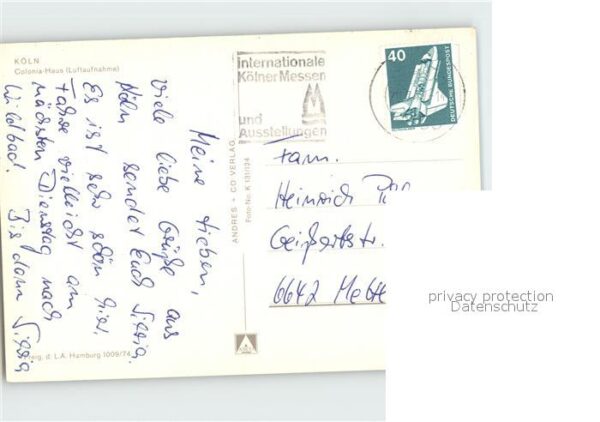 KÖLN
Colonia-Haus (Luftaufnahme)
Meine Lieben,
viele liebe Grüße aus
Köln sendet Euch
Es ist sehr schön hier.
Fahre vielleicht am
nächsten Dienstag nach
Wildbad. Bis dann
d. L.A. Hamburg 1009/74
ANDRES + CO VERLAG
Foto-No. K 131/124
Internationale
KölnerMessen
und
Ausstellungen
40
DEUTSCHE BUNDESPOST
Fam.
Heinrich
6642
privacy protection
Datenschutz